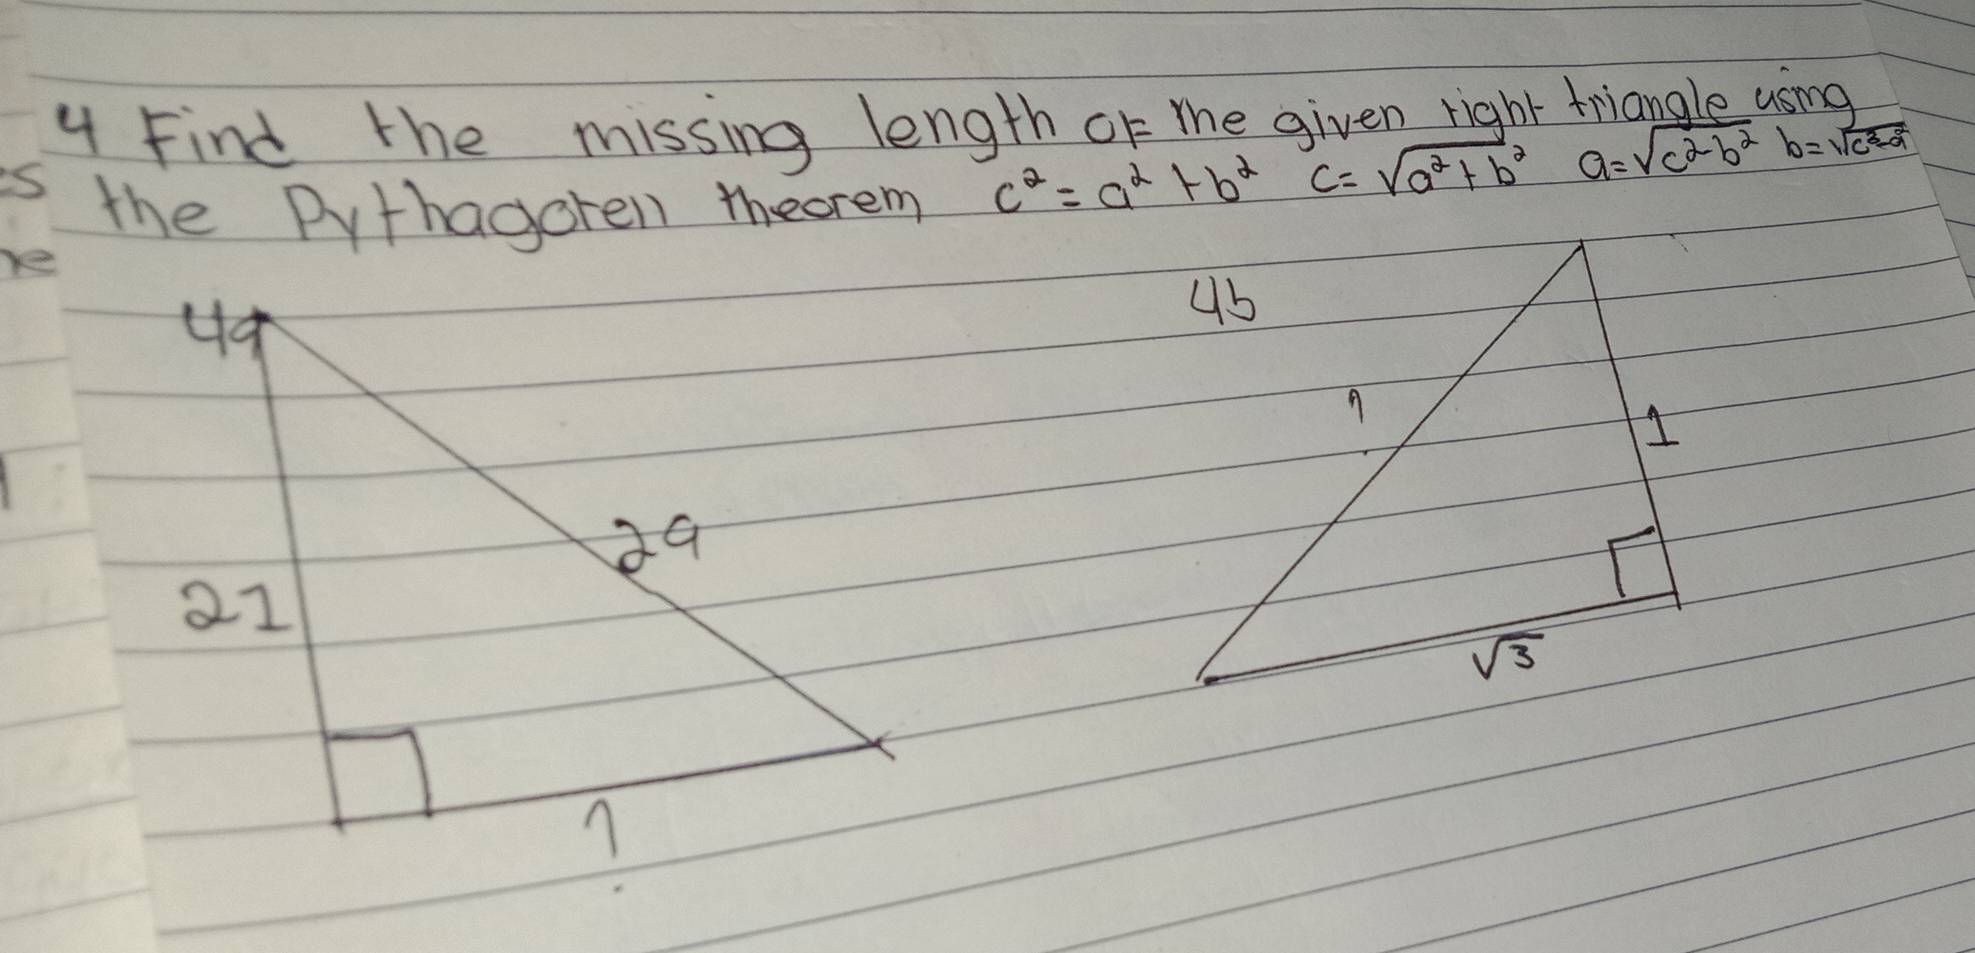 4 Find the missing length of the given right triangle using
the Pythagoren theorem c² = a² + b² c = √a² + b² a = √c² - b² b = √c² - a²
4a
4b
?
1
29
21
√3
?